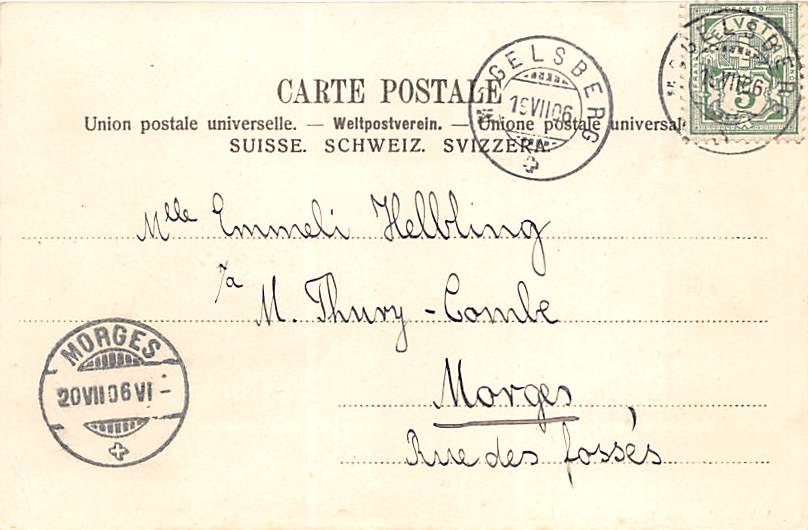 CARTE POSTALE
Union postale universelle. — Weltpostverein. — Unione postale universale
SUISSE. SCHWEIZ. SVIZZERA.
MOGELSBERG
19 VII 06
HELVETIA
5
Mlle Emmeli Helbling
%a M. Thury-Combe
Morges,
Rue des fossés
MORGES
20 VII 06 VI -